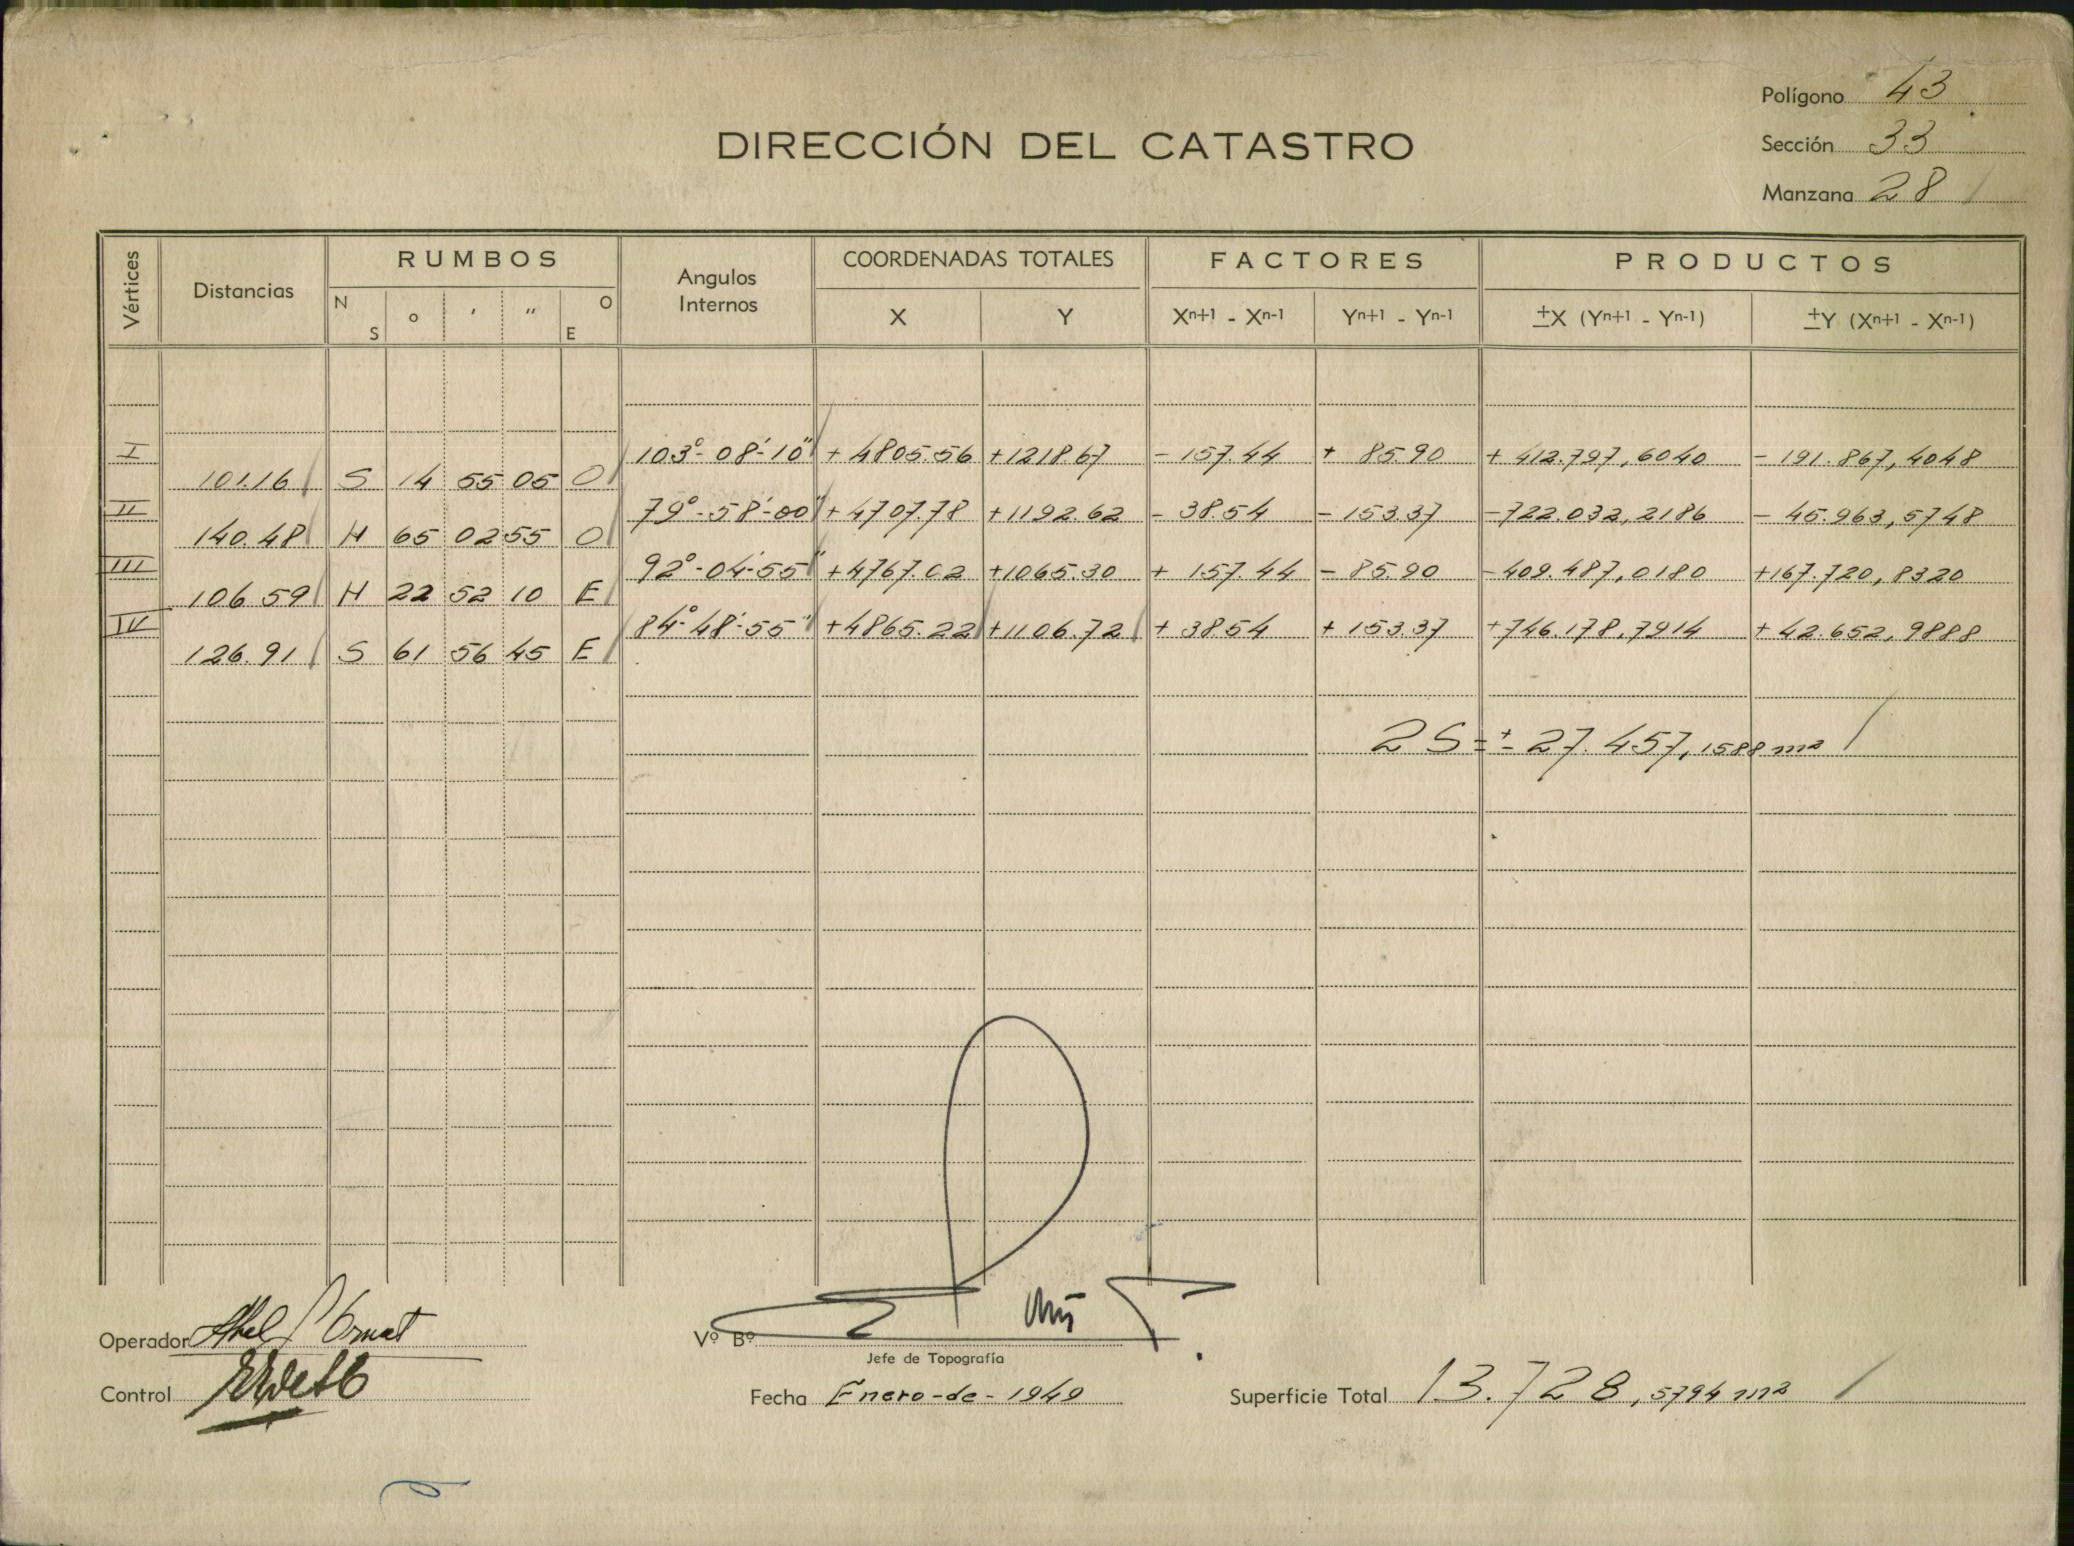 Polígono 43
DIRECCIÓN DEL CATASTRO
Sección 33
Manzana 28
Vértices Distancias RUMBOS N S ° ' " O E Angulos Internos COORDENADAS TOTALES X Y FACTORES Xn+1 - Xn-1 Yn+1 - Yn-1 PRODUCTOS ±X (Yn+1 - Yn-1) ±Y (Xn+1 - Xn-1)
I 103°-08'-10" +4805.56 +1218.67 -157.44 + 85.90 +412.797,6040 -191.867,4048
101.16 S 14 55 05 O
II 79°-58'-00" +4707.78 +1192.62 - 38.54 -153.37 -722.032,2186 - 45.963,5748
140.48 N 65 02 55 O
III 92°-04'-55" +4767.02 +1065.30 + 157.44 - 85.90 -409.487,0180 +167.720,8320
106.59 N 22 52 10 E
IV 84°-48'-55" +4865.22 +1106.72 + 38.54 + 153.37 +746.178,7914 + 42.652,9888
126.91 S 61 56 45 E
2S=± 27.457,1588 m²
Operador
Vº Bº
Jefe de Topografía
Control
Fecha Enero-de-1949
Superficie Total 13.728,5794 m²